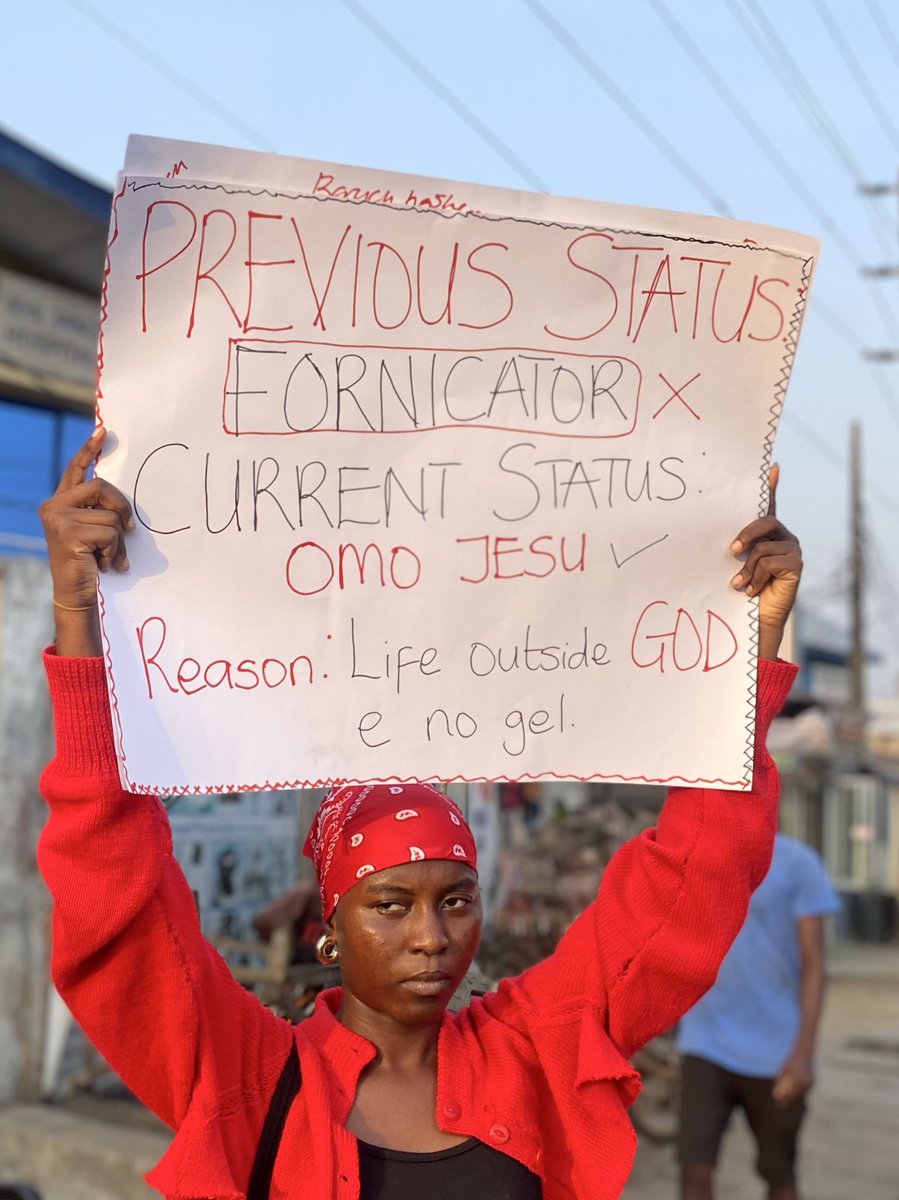 Baruch hashe
PREVIOUS STATUS:
FORNICATOR X
CURRENT STATUS:
OMO JESU ✓
Reason: Life outside GOD
e no gel.